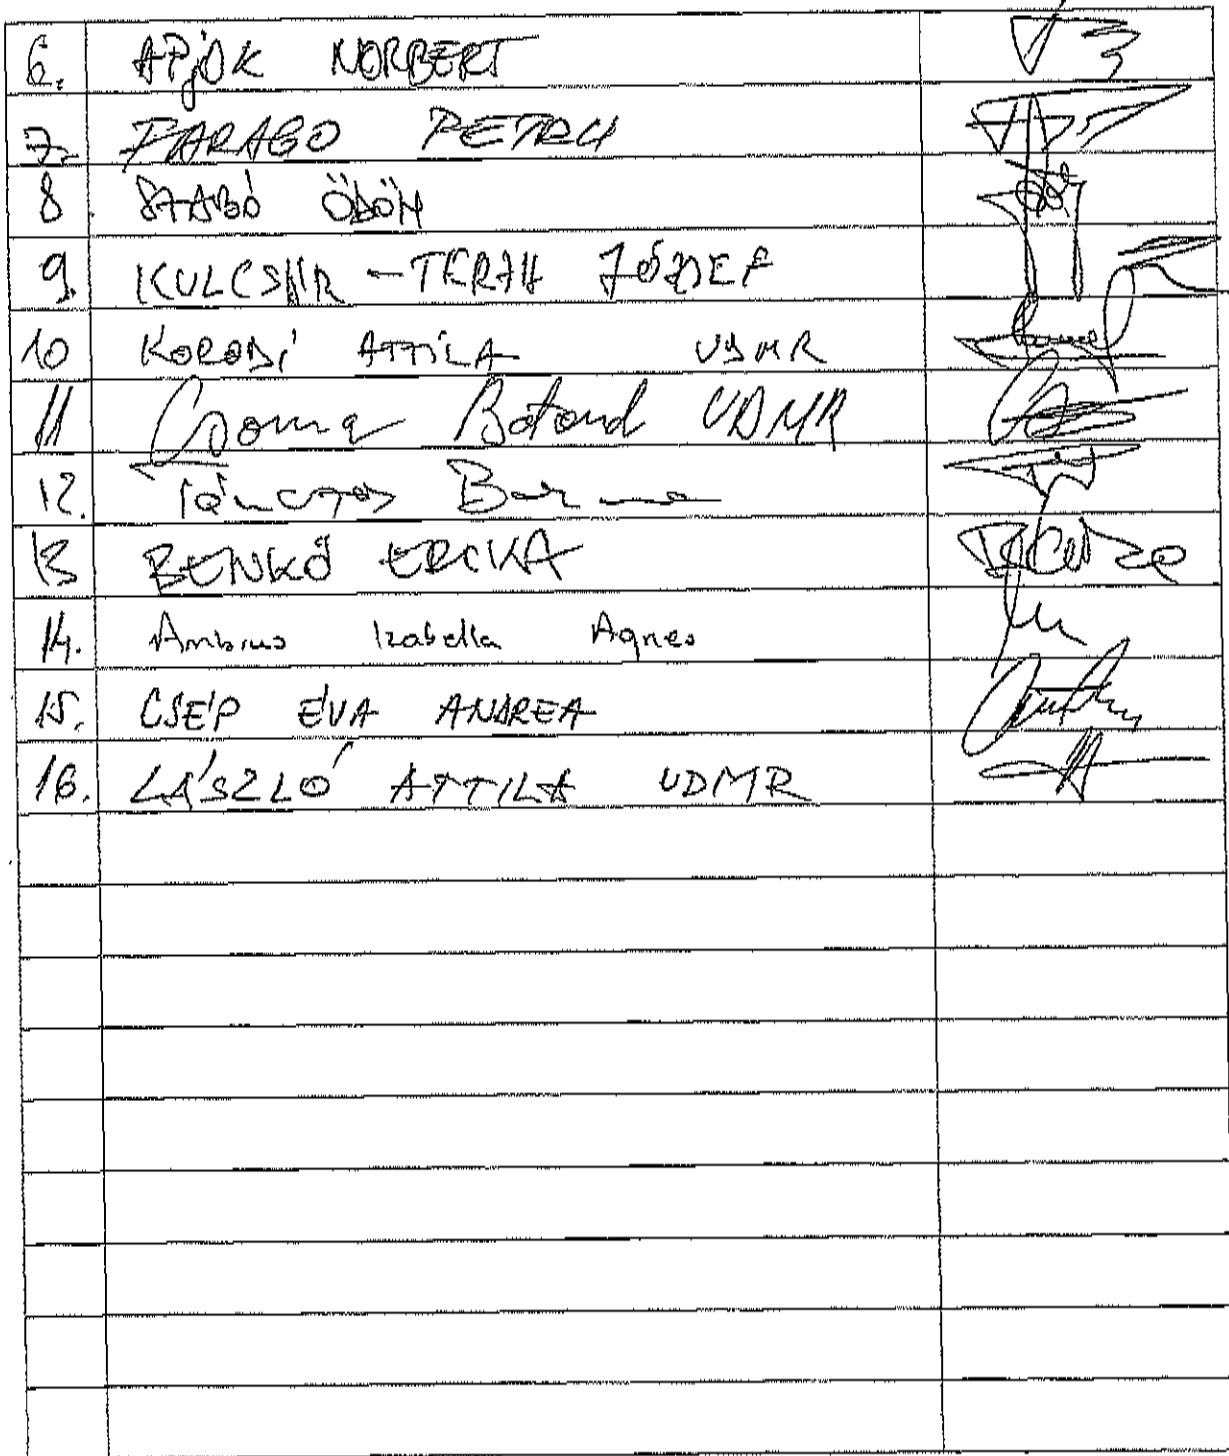 6. APJOK NORBERT
7. FARAGO PETRU
8. SZABÓ ÖDÖN
9. KULCSÁR-TERZA JÓZSEF
10 KORODI ATTILA UDMR
11 Csoma Botond UDMR
12. Tánczos Barna
13 BENKŐ ERIKA
14. Ambrus Izabella Agnes
15. CSÉP ÉVA ANDREA
16. LÁSZLÓ ATTILA UDMR